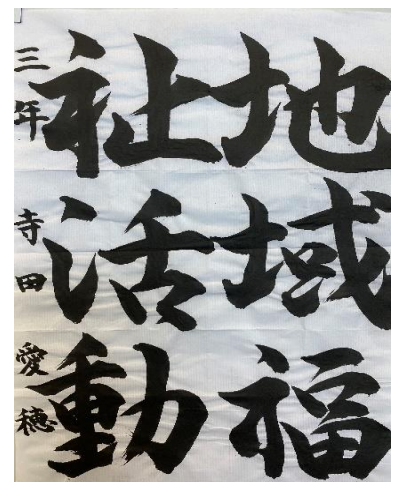 地域福
社活動
三年 寺田 愛穂